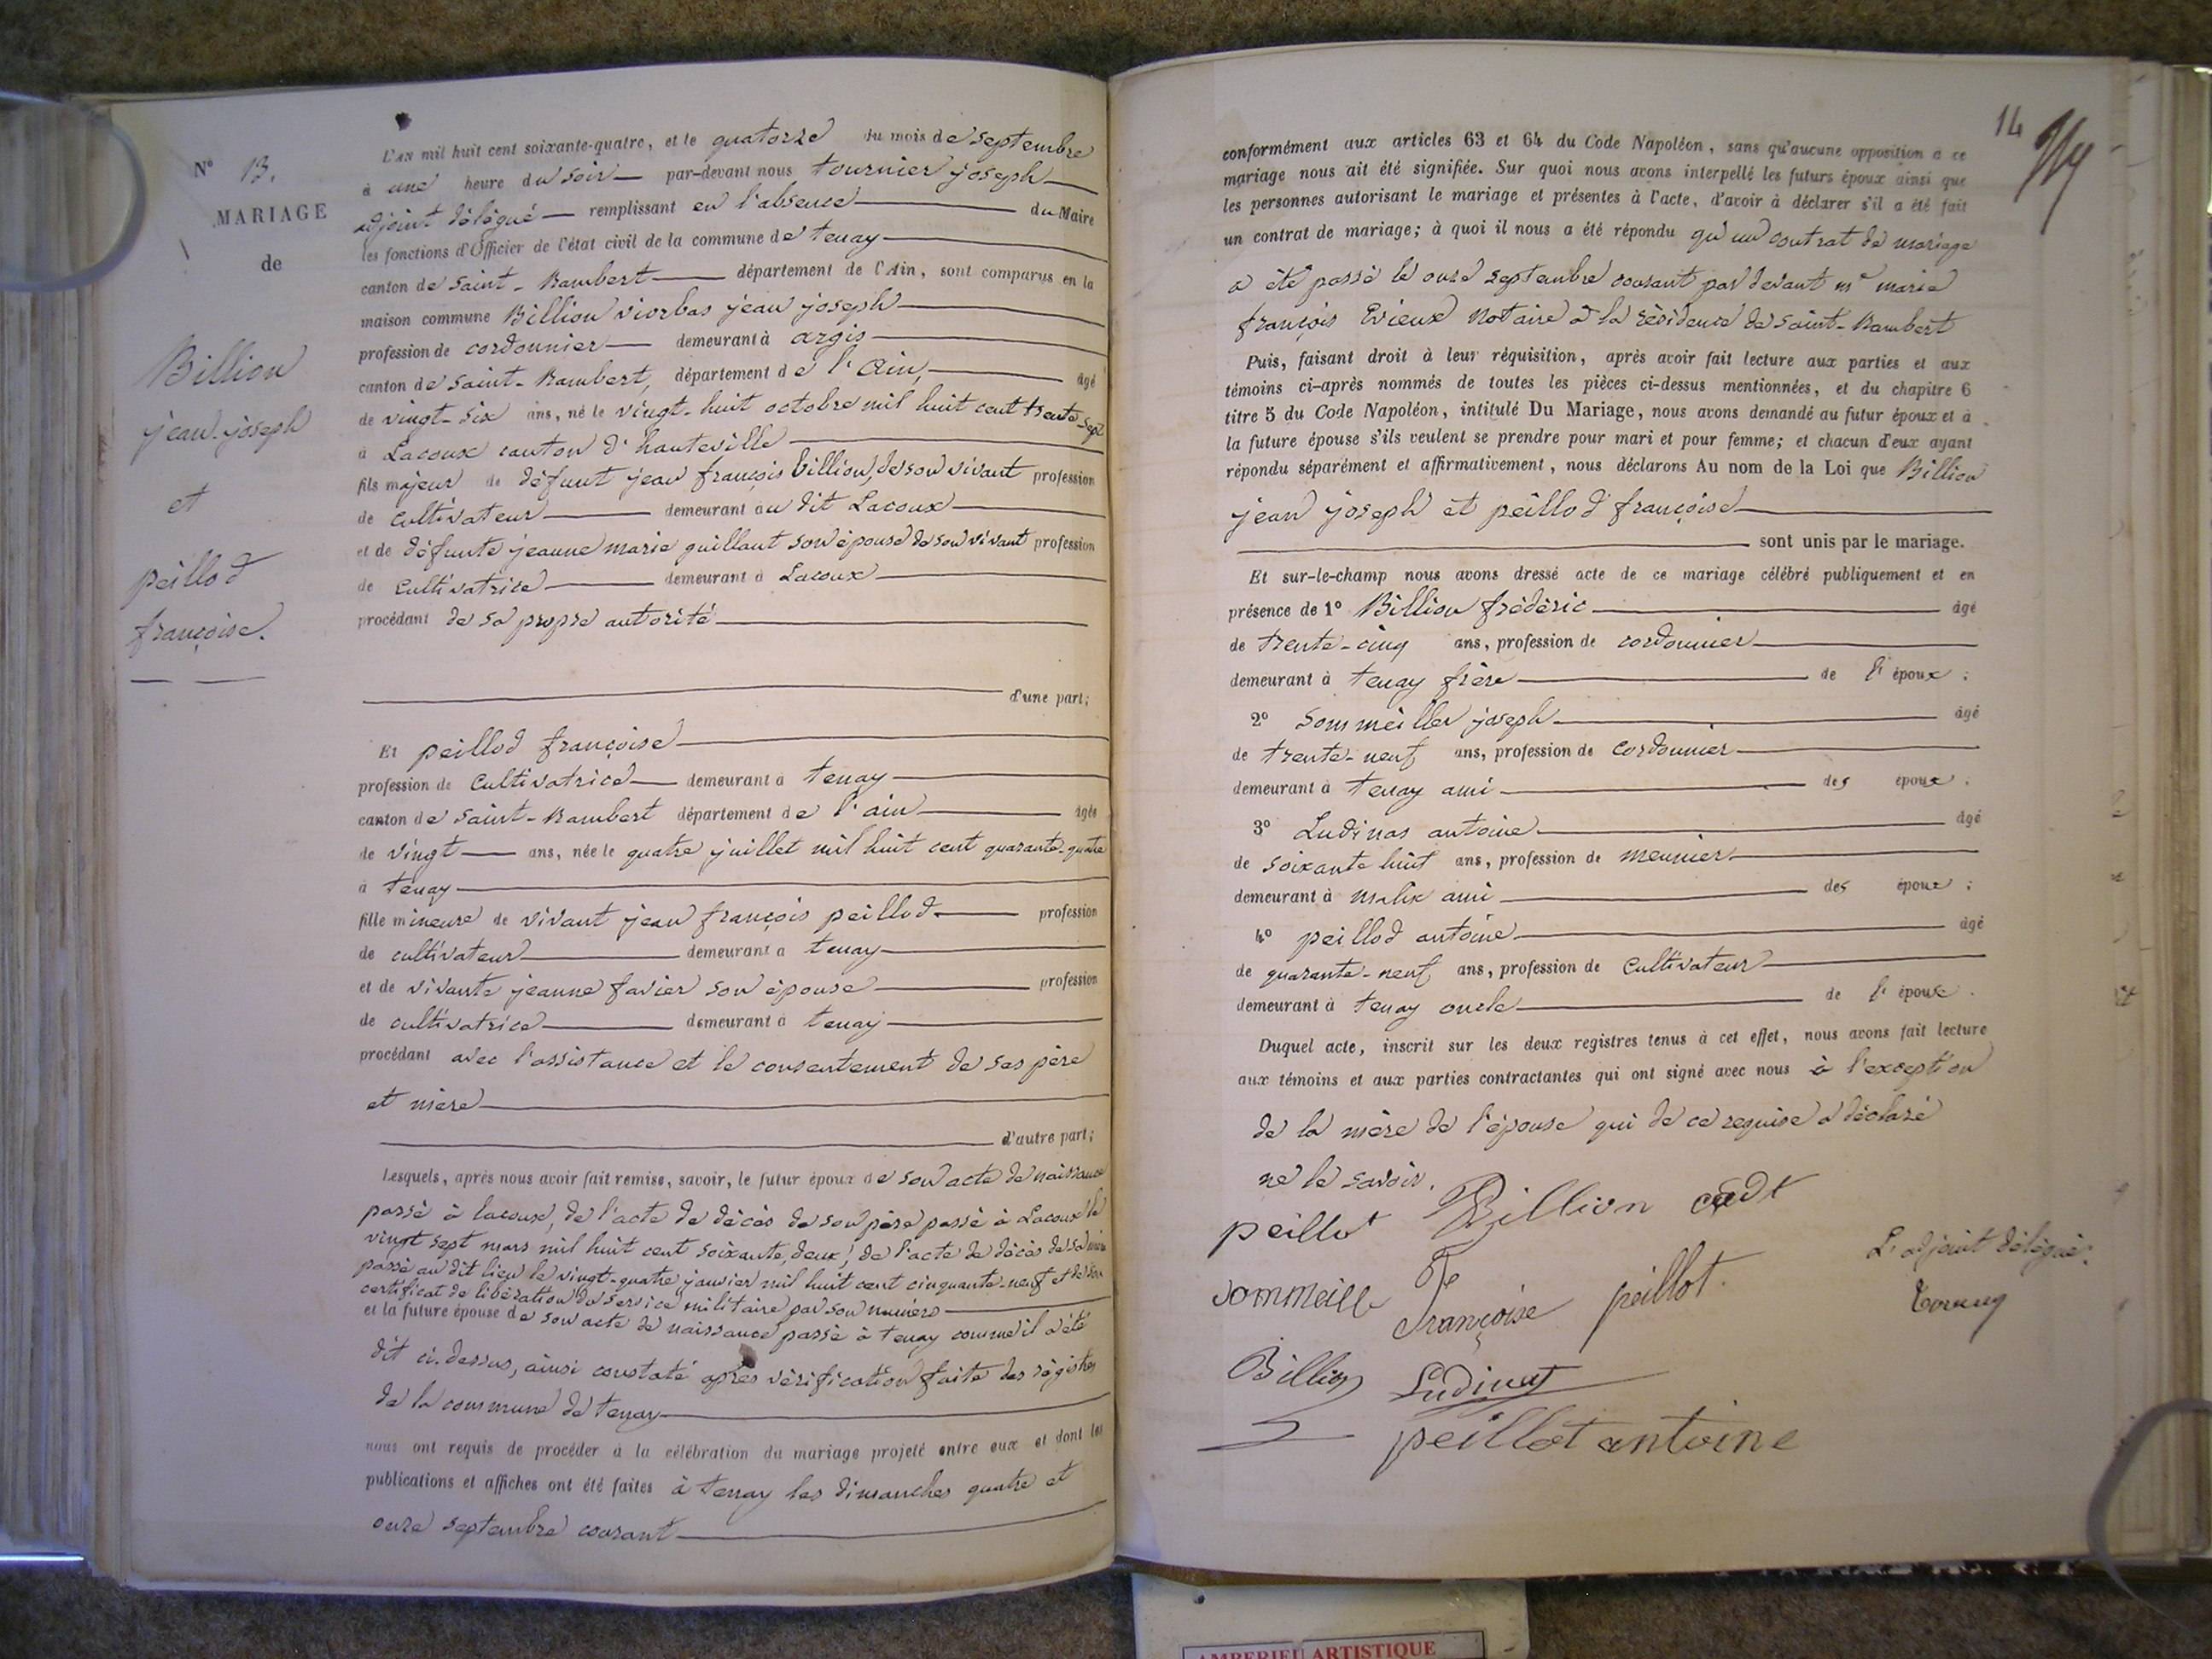 N° 13.
MARIAGE
de
Billion
jean-joseph
et
peillod
françoise.
L'AN mil huit cent soixante-quatre, et le quatorze du mois de septembre
à une heure du soir par-devant nous tournier joseph
adjoint délégué remplissant en l'absence du Maire
les fonctions d'Officier de l'état civil de la commune de tenay
canton de saint-Rambert département de l'Ain, sont comparus en la
maison commune Billion viorbas jean joseph
profession de cordonnier demeurant à argis
canton de saint-Rambert, département de l'Ain, âgé
de vingt-six ans, né le vingt-huit octobre mil huit cent trente-sept
à Lacoux canton d'hauteville
fils majeur de défunt jean françois billion, de son vivant profession
de cultivateur demeurant au dit Lacoux
et de défunte jeanne marie guillaut son épouse de son vivant profession
de cultivatrice demeurant à Lacoux
procédant de sa propre autorité
d'une part;
Et peillod françoise
profession de cultivatrice demeurant à tenay
canton de saint-Rambert département de l'ain âgée
de vingt ans, née le quatre juillet mil huit cent quarante-quatre
à tenay
fille mineure de vivant jean françois peillod profession
de cultivateur demeurant à tenay
et de vivante jeanne favier son épouse profession
de cultivatrice demeurant à tenay
procédant avec l'assistance et le consentement de ses père
et mère
d'autre part;
Lesquels, après nous avoir fait remise, savoir, le futur époux de son acte de naissance
passé à lacoux, de l'acte de décès de son père passé à Lacoux le
vingt sept mars mil huit cent soixante, deux, de l'acte de décès de sa mère
passé au dit lieu le vingt-quatre janvier mil huit cent cinquante-neuf et de son
certificat de libération du service militaire par son numéro
et la future épouse de son acte de naissance passé à tenay comme il a été
dit ci-dessus, ainsi constaté après vérification faite des régistres
de la commune de tenay
nous ont requis de procéder à la célébration du mariage projeté entre eux et dont les
publications et affiches ont été faites à tenay les dimanches quatre et
onze septembre courant
14
conformément aux articles 63 et 64 du Code Napoléon, sans qu'aucune opposition a ce
mariage nous ait été signifiée. Sur quoi nous avons interpellé les futurs époux ainsi que
les personnes autorisant le mariage et présentes à l'acte, d'avoir à déclarer s'il a été fait
un contrat de mariage; à quoi il nous a été répondu qu'un contrat de mariage
a été passé le onze septembre courant par devant me marie
françois Evieux Notaire à la résidence de saint-Rambert
Puis, faisant droit à leur réquisition, après avoir fait lecture aux parties et aux
témoins ci-après nommés de toutes les pièces ci-dessus mentionnées, et du chapitre 6
titre 5 du Code Napoléon, intitulé Du Mariage, nous avons demandé au futur époux et à
la future épouse s'ils veulent se prendre pour mari et pour femme; et chacun d'eux ayant
répondu séparément et affirmativement, nous déclarons Au nom de la Loi que Billion
jean joseph et peillod françoise
sont unis par le mariage.
Et sur-le-champ nous avons dressé acte de ce mariage célébré publiquement et en
présence de 1° Billion frédéric âgé
de trente-cinq ans, profession de cordonnier
demeurant à tenay frère de l'époux;
2° sommeiller joseph âgé
de trente-neuf ans, profession de cordonnier
demeurant à tenay ami des époux.
3° Ludinas antoine âgé
de soixante huit ans, profession de meunier
demeurant à malix ami des époux;
4° peillod antoine âgé
de quarante-neuf ans, profession de cultivateur
demeurant à tenay oncle de l'épouse.
Duquel acte, inscrit sur les deux registres tenus à cet effet, nous avons fait lecture
aux témoins et aux parties contractantes qui ont signé avec nous à l'exception
de la mère de l'épouse qui de ce requise a déclaré
ne le savoir.
peillot Billion cadt
L'adjoint délégué:
sommeille
françoise peillot.
Billion Ludinat
peillot antoine
AMBERIEU ARTISTIQUE